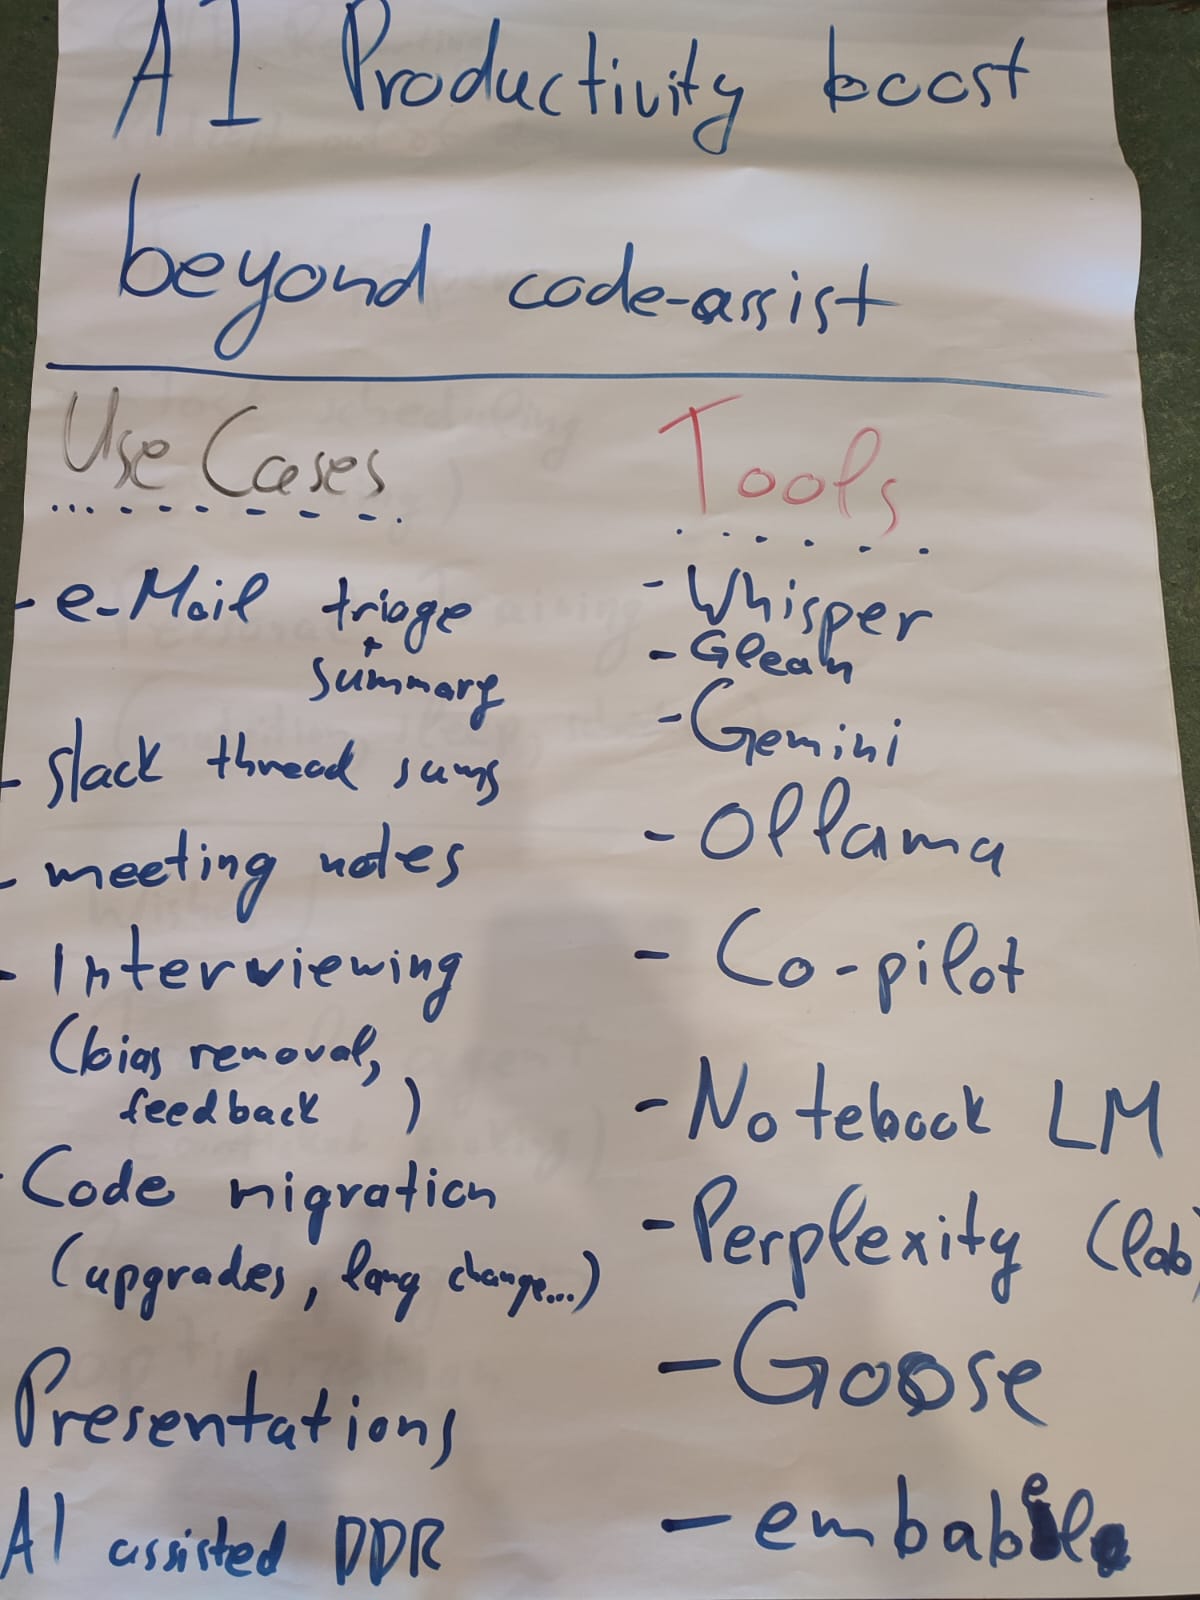 AI Productivity boost
beyond code-assist
Use Cases
- e-Mail triage
+
summary
- slack thread sums
- meeting notes
- Interviewing
(bias removal,
feedback )
- Code migration
(upgrades, lang change...)
Presentations
AI assisted DDR
Tools
- Whisper
- Glean
- Gemini
- Ollama
- Co-pilot
- Notebook LM
- Perplexity (lab)
- Goose
- embabel